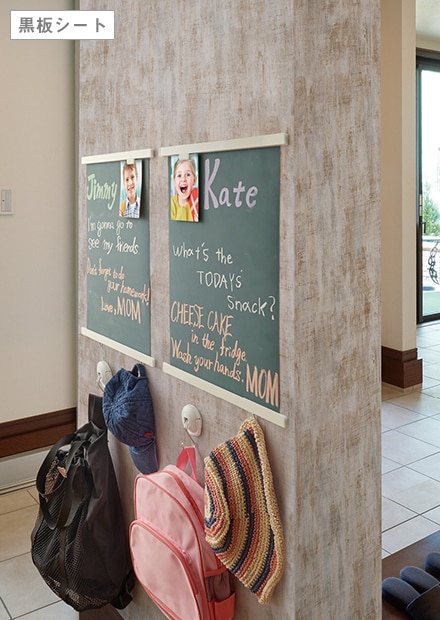 黒板シート
Jimmy
I'm gonna go to
see my friends
Don't forget to do
your homework!
Love, MOM
Kate
What's the
TODAYS'
Snack?
CHEESE CAKE
in the fridge.
Wash your hands.
MOM